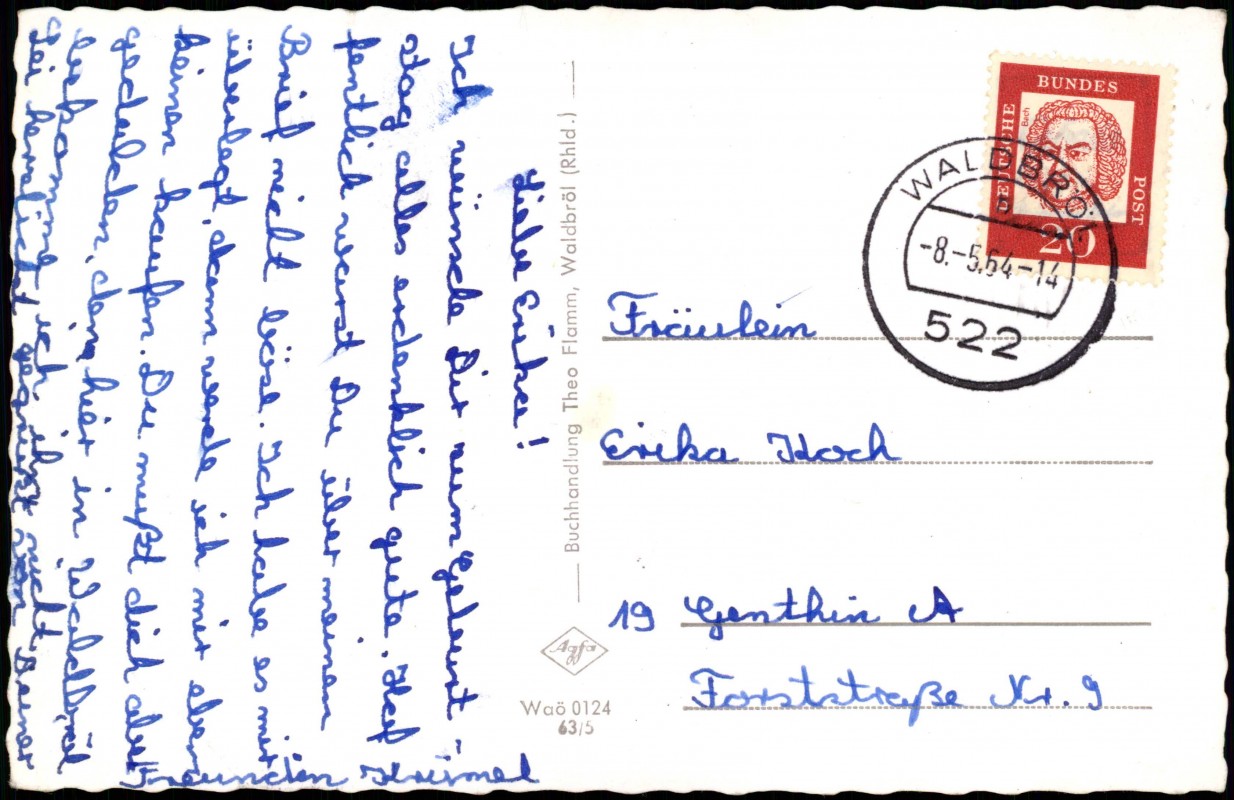 Liebe Erika!
Ich wünsche Dir zum Geburts-
tag alles erdenklich gute. Hof
fentlich warst Du über meinen
Brief nicht böse. Ich habe es mir
überlegt, dann werde ich mir eben
keinen kaufen. Du mußt dich aber
gedulden, denn hier in Waldbröl
bekomme ich ihn nicht
Sei herzlichst gegrüßt von Deiner
Freundin
Buchhandlung Theo Flamm, Waldbröl (Rhld.)
Agfa
Waö 0124
63/5
DEUTSCHE
BUNDES
POST
Bach
20
WALDBRÖL
-8.-5.64-14
522
Fräulein
Erika Koch
19 Genthin A
Forststraße Nr. 9